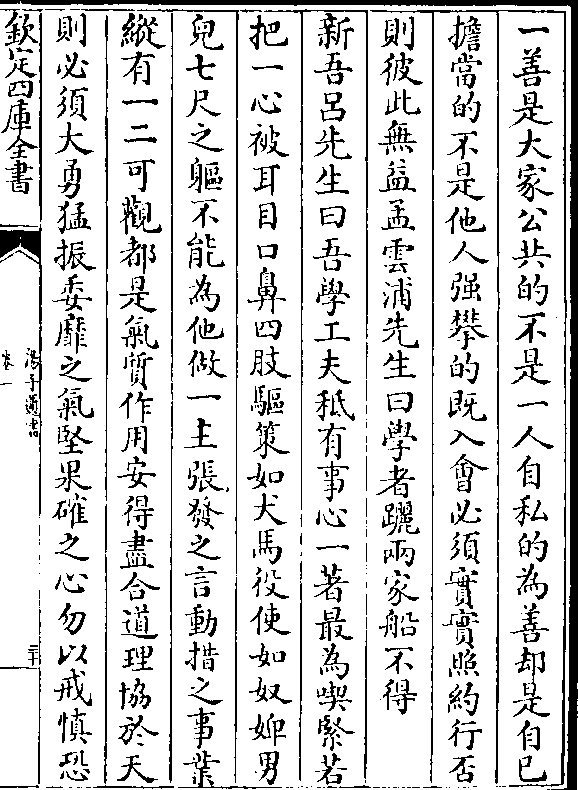 一善是大家公共的不是一人自私的為善却是自已
擔當的不是他人强攀的既入會必須實實照約行否
則彼此無益孟雲浦先生曰學者躧兩家船不得
新吾呂先生曰吾學工夫秪有事心一著最為喫緊若
把一心被耳目口鼻四肢驅策如犬馬役使如奴婢男
兒七尺之軀不能為他做一主張發之言動措之事業
縱有一二可觀都是氣質作用安得盡合道理協於天
則必須大勇猛振委靡之氣堅果確之心勿以戒慎恐
欽定四庫全書
湯子遺書
卷一
二十